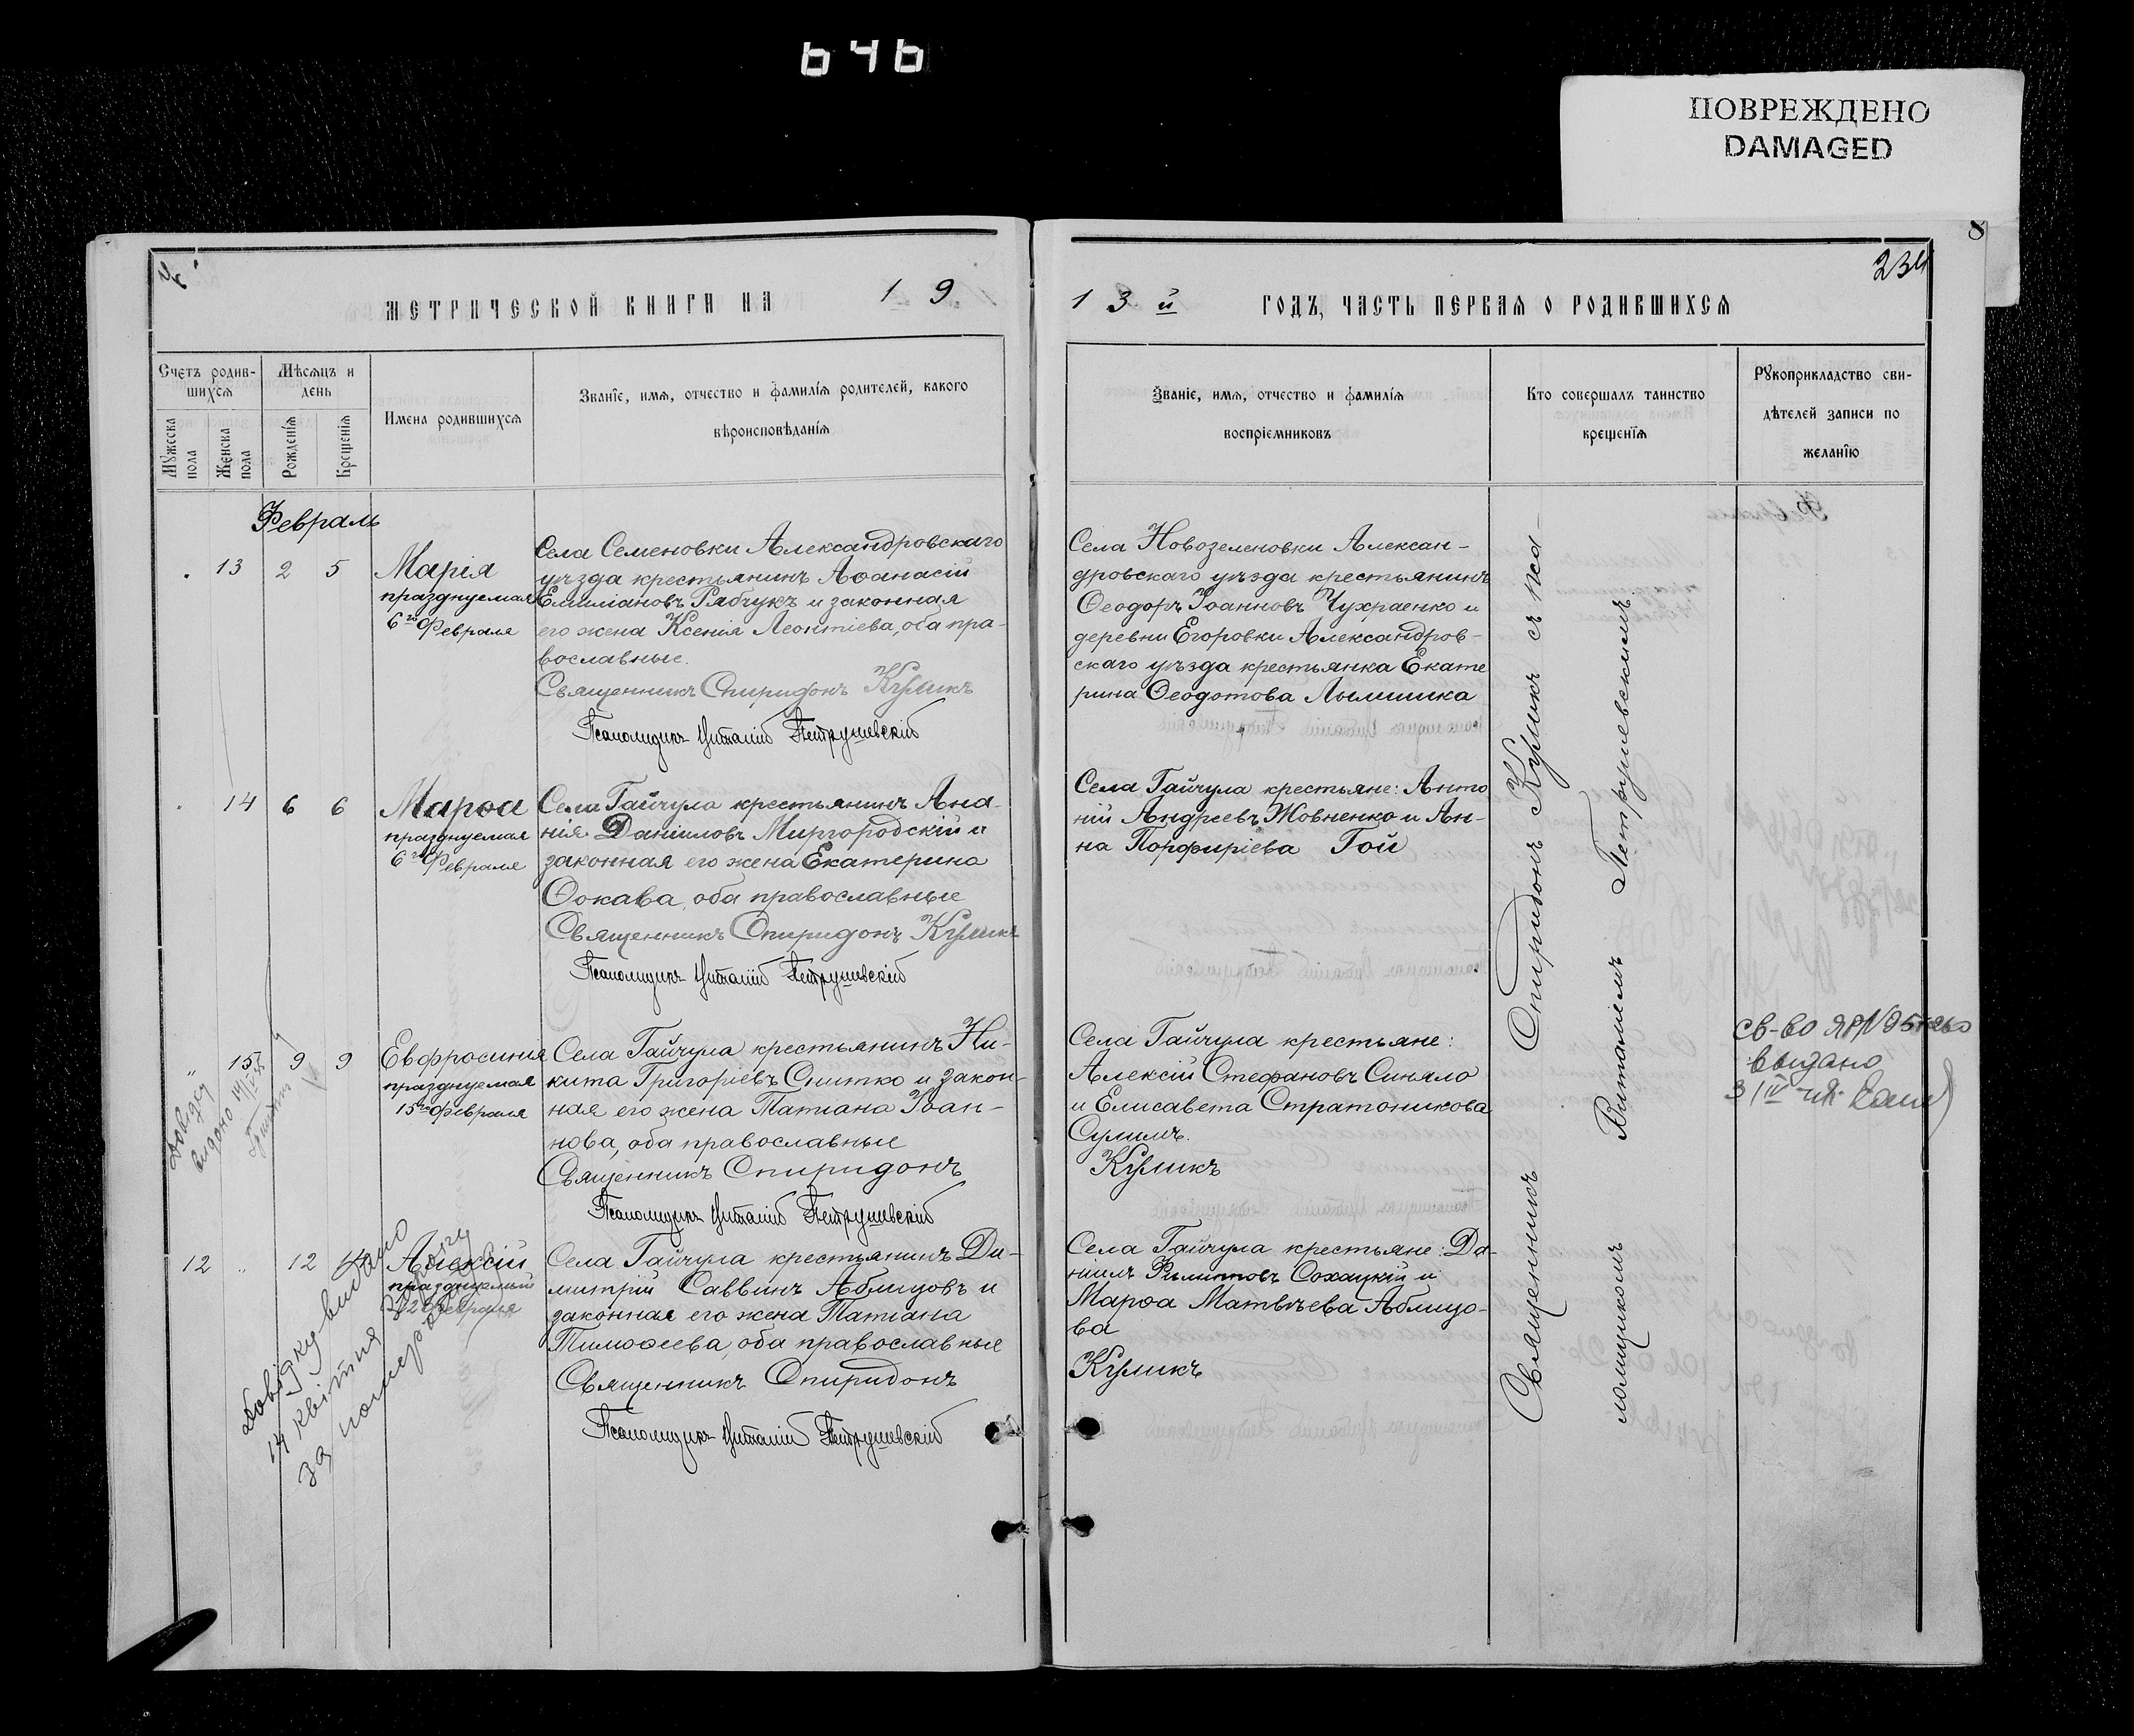 646
ПОВРЕЖДЕНО
DAMAGED
8
234
МЕТРИЧЕСКОЙ КНИГИ НА 19
13й ГОДЪ, ЧАСТЬ ПЕРВАЯ О РОДИВШИХСЯ
Счетъ родив-
шихся
Мѣсяцъ и
день
Мужеска пола
Женска пола
Рожденія
Крещенія
Имена родившихся
Званіе, имя, отчество и фамилія родителей, какого
вѣроисповѣданія
Званіе, имя, отчество и фамилія
воспріемниковъ
Кто совершалъ таинство
крещенія
Рукоприкладство сви-
дѣтелей записи по
желанію
Февраль
13 2 5
Марія
празднуемая
6го Февраля
Села Семеновки Александровскаго
уѣзда крестьянинъ Аѳанасій
Емиліановъ Рябчукъ и законная
его жена Ксенія Леонтіева, оба пра-
вославные.
Священникъ Спиридонъ Куликъ
Псаломщикъ Виталій Петрушевскій
Села Новозеленовки Алексан-
дровскаго уѣзда крестьянинъ
Ѳеодоръ Іоанновъ Чухраенко и
деревни Егоровки Александров-
скаго уѣзда крестьянка Екате
рина Ѳеодотова
14 6 6
Марѳа
празднуемая
6го Февраля
Села Гайчула крестьянинъ Ана-
нія Даніиловъ Миргородскій и
законная его жена Екатерина
Ѳокава, оба православные
Священникъ Спиридонъ Куликъ
Псаломщикъ Виталій Петрушевскій
Села Гайчула крестьяне: Анто
ній Андреевъ Жовненко и Ан-
на Порфиріева Гой
" 15 9 9
Евфросинія
празднуемая
15го Февраля
Села Гайчула крестьянинъ Ни-
кита Григоріевъ Снитко и закон-
ная его жена Татіана Іоан-
нова, оба православные
Священникъ Спиридонъ
Псаломщикъ Виталій Петрушевскій
Села Гайчула крестьяне:
Алексій Стефановъ Синяло
и Елисавета Стратоникова
Сулимъ.
Куликъ
св-во ЯР№
выдано
Довідку
видано
12 " 12
Алексій
празднуемый
12 Февраля
Села Гайчула крестьянинъ Ди-
митрій Саввинъ Аблицовъ и
законная его жена Татіана
Тимоѳеева, оба православные
Священникъ Спиридонъ
Псаломщикъ Виталій Петрушевскій
Села Гайчула крестьяне: Да-
ніилъ Сохацкій и
Марѳа Матвѣева Аблицо-
ва
Куликъ
Довідку видано
14 квітня
за номером
Священникъ Спиридонъ Куликъ съ пса-
ломщикомъ Виталіемъ Петрушевскимъ.